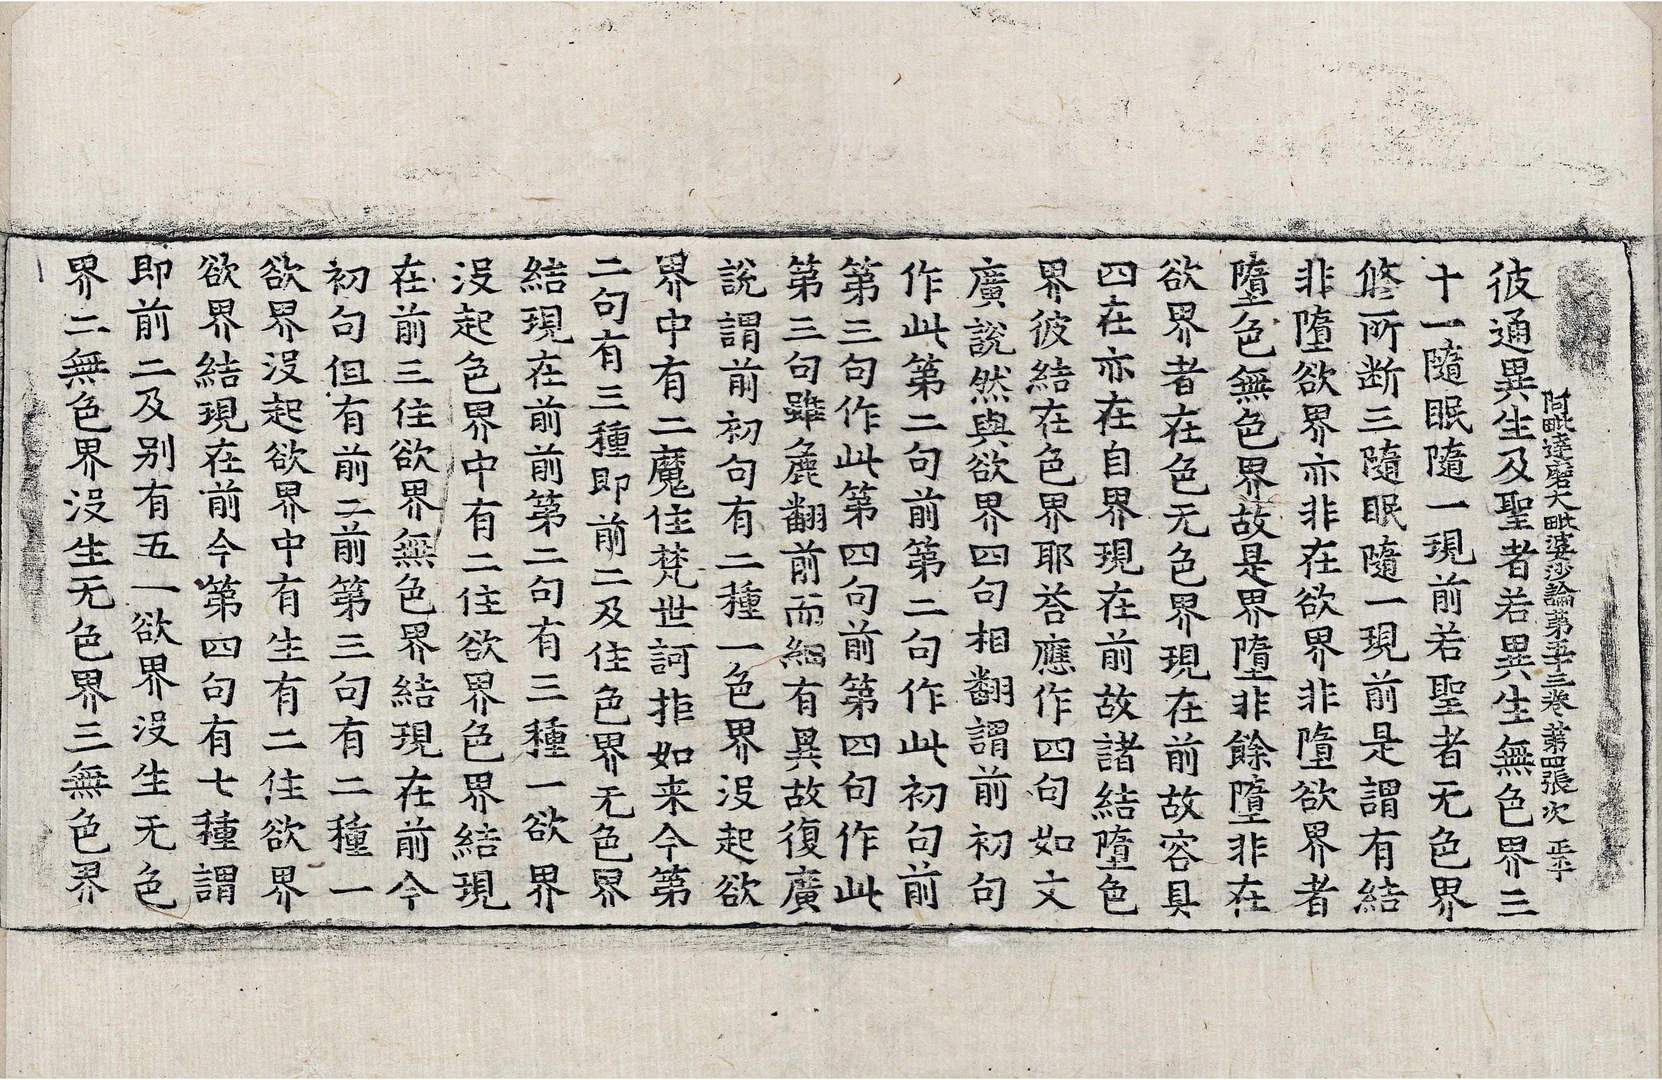 阿毗達磨大毗婆沙論第五十三卷 第四張 次 正平
彼通異生及聖者若異生無色界三
十一隨眠隨一現前若聖者无色界
修所断三隨眠隨一現前是謂有結
非墮欲界亦非在欲界非墮欲界者
墮色無色界故是界墮非餘墮非在
欲界者在色无色界現在前故容具
四在亦在自界現在前故諸結墮色
界彼結在色界耶荅應作四句如文
廣說然與欲界四句相翻謂前初句
作此第二句前第二句作此初句前
第三句作此第四句前第四句作此
第三句雖麁翻前而細有異故復廣
說謂前初句有二種一色界沒起欲
界中有二魔住梵世訶拒如来今第
二句有三種即前二及住色界无色界
結現在前前第二句有三種一欲界
沒起色界中有二住欲界色界結現
在前三住欲界無色界結現在前今
初句但有前二前第三句有二種一
欲界沒起欲界中有生有二住欲界
欲界結現在前今第四句有七種謂
即前二及别有五一欲界沒生无色
界二無色界沒生无色界三無色界